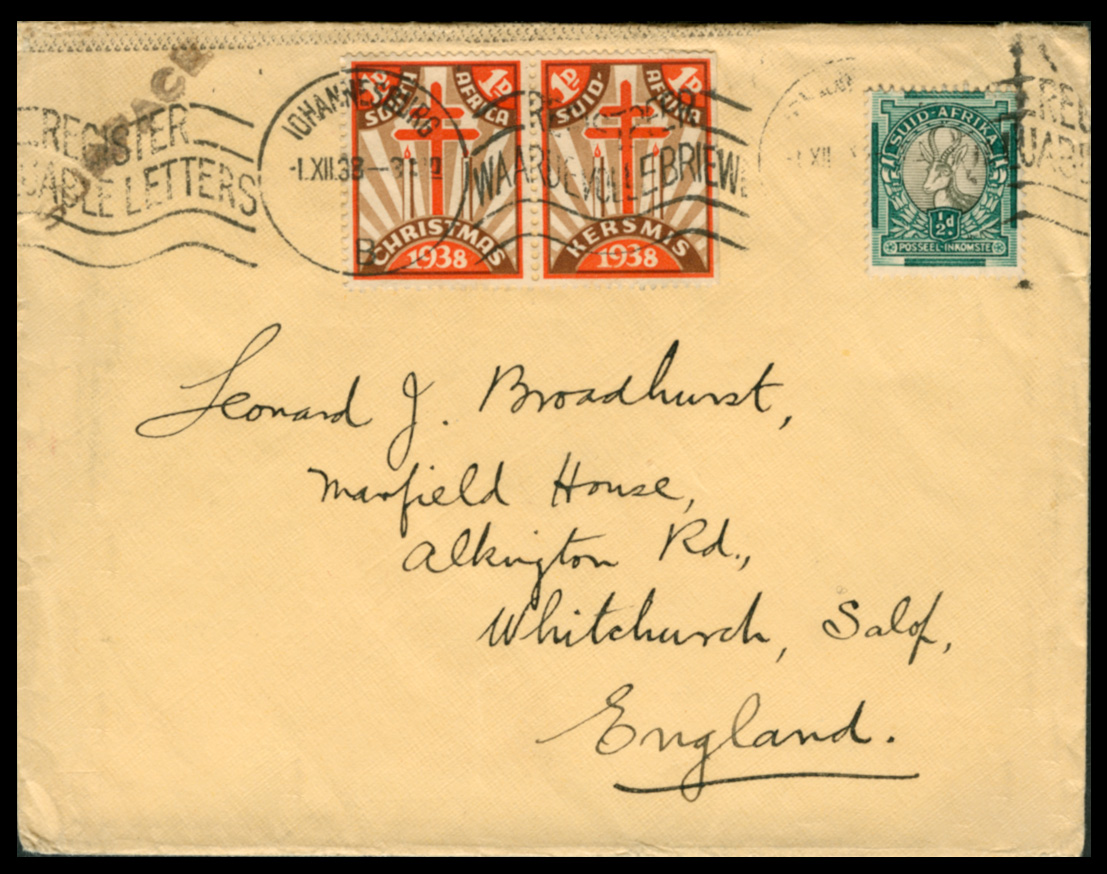 REGISTER
LETTERS
JOHANNESBURG
1.XII.38
B
1D 1D
SOUTH AFRICA
CHRISTMAS
1938
1D 1D
SUID-AFRIKA
KERSMIS
1938
WAARDEVOLLE BRIEWE
1.XII
SUID-AFRIKA
½d
POSSEEL-INKOMSTE
Leonard J. Broadhurst,
Marfield House,
Alkington Rd.,
Whitchurch, Salop,
England.